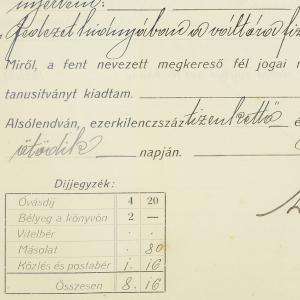 nyertem:
fedezet hiányában a váltóra fiz
Miről, a fent nevezett megkereső fél jogai m
tanusítványt kiadtam.
Alsólendván, ezerkilencszáz tizenkettő é
ötödik napján.
Díjjegyzék:
Óvásdíj 4 20
Bélyeg a könyvön 2 —
Vitelbér . .
Másolat . 80
Közlés és postabér 1. 16
Összesen 8. 16